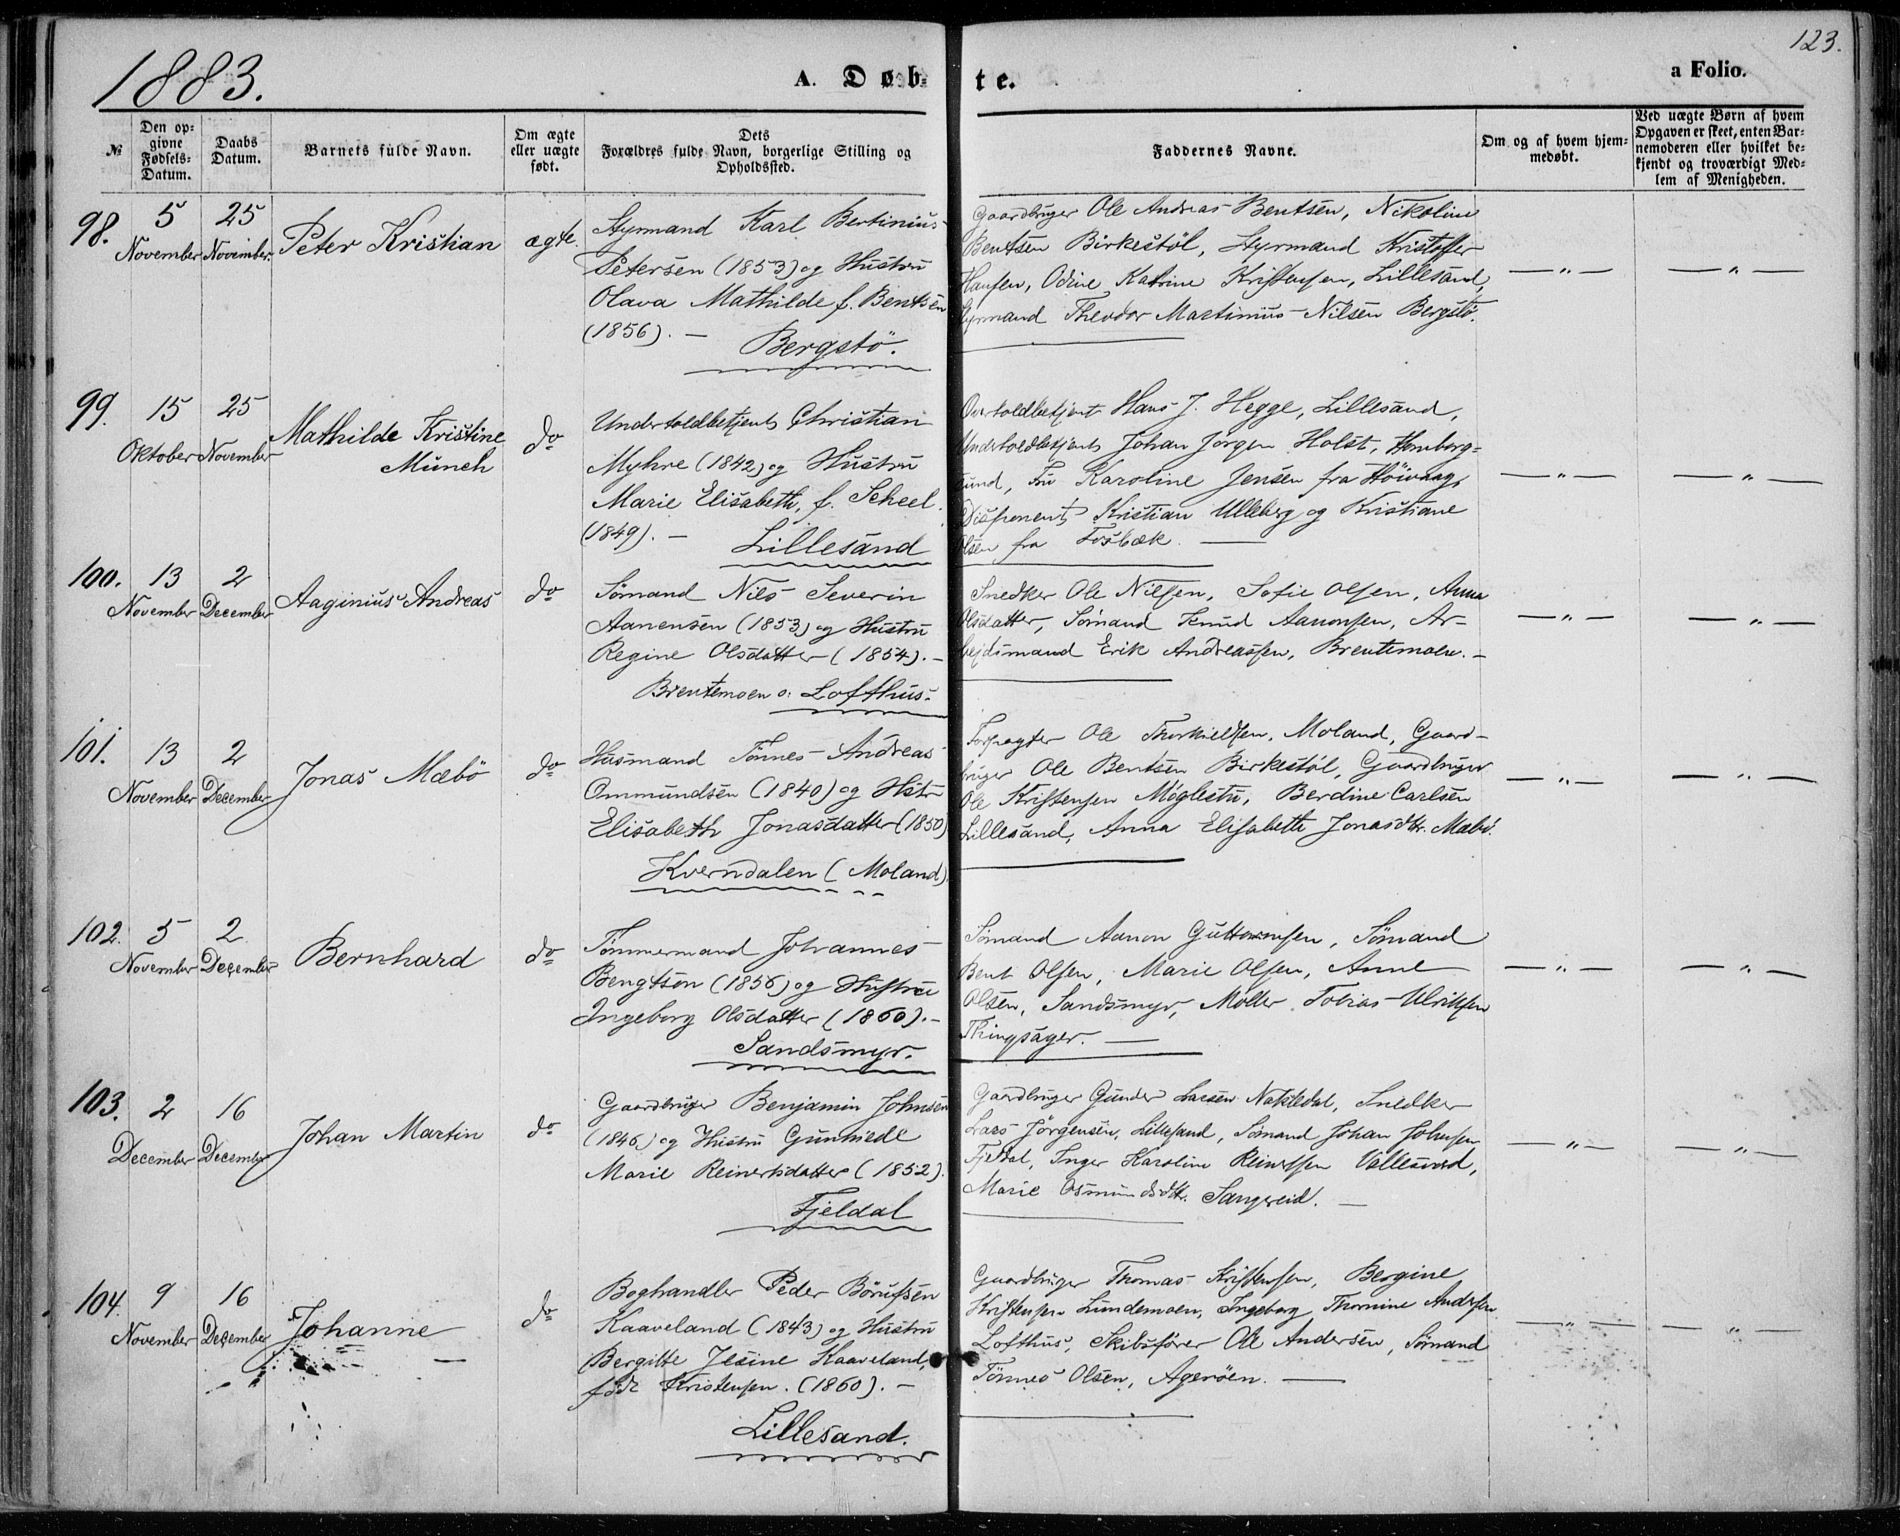 1883.
A. Døb-
te.
a Folio.
123.
№
Den op-
givne
Fødsels-
Datum.
Daabs
Datum.
Barnets fulde Navn.
Om ægte
eller uægte
født.
Dets
Forældres fulde Navn, borgerlige Stilling og
Opholdssted.
Faddernes Navne.
Om og af hvem hjem-
medøbt.
Ved uægte Børn af hvem
Opgaven er skeet, enten Bar-
nemoderen eller hvilket be-
kjendt og troværdigt Med-
lem af Menigheden.
98.
5
November
25
November.
Peter Kristian
ægte.
Styrmand Karl Bertinius
Petersen (1853) og Hustru
Olava Mathilde f. Bentsen
(1856). —
Bergstö.
Gaardbruger Ole Andreas Bentsen, Nikoline
Bentsen Birkestöl, Styrmand Kristoffer
Hansen, Odine Katrine Kristensen, Lillesand,
Styrmand Theodor Martinius Nilsen Bergstö.
— " —
— " —
99.
15
Oktober
25
November
Mathilde Kristine
Münch
do
Undertoldbetjent Christian
Myhre (1842) og Hustru
Marie Elisabeth, f. Scheel.
(1849). —
Lillesand
Overtoldbetjent Hans J. Hegge, Lillesand,
Undertoldbetjent Johan Jörgen Holst, Homborg-
sund, Fru Karoline Jensen fra Höivaag,
Disponent Kristian Ulleberg og Kristiane
Olsen fra Fosbæk. —
— " —
— " —
100.
13
November
2
December
Aaginius Andreas
do
Sömand Nils Severin
Aanensen (1853) og Hustru
Regine Olsdatter (1854). —
Brentemoen o: Lofthus.
Snedker Ole Nilsen, Sofie Olsen, Anna
Olsdatter, Sömand Knud Aanonsen, Ar-
beidsmand Erik Andreassen, Brentemoen. —
— " —
— " —
101.
13
November
2
December
Jonas Mæbö
do
Husmand Tönnes Andreas
Ommundsen (1840) og Hstr
Elisabeth Jonasdatter (1850)
Kverndalen (Moland)
Forpagter Ole Thorkieldsen, Moland, Gaard-
bruger Ole Bentsen Birkestöl, Gaardbruger
Ole Kristensen Möglestu, Berdine Carlsen
Lillesand, Anna Elisabeth Jonasdtr. Mæbö.
— " —
— " —
102.
5
November
2
December
Bernhard
do
Tömmermand Johannes
Bengtson (1856) og Hustru
Ingeborg Olsdatter (1860). —
Sandsmyr.
Sömand Aanon Guttormsen, Sömand
Bent Olsen, Marie Olsen, Anne
Olsen, Sandsmyr, Möller Tobias Ulriksen
Thingsager. —
— " —
— " —
103.
2
December
16
December
Johan Martin
do
Gaardbruger Benjamin Johnsen
(1846) og Hustru Gunhilde
Marie Reinertsdatter (1852).
Fjeldal
Gaardbruger Gunder Larsen Natvedal, Snedker
Lars Jörgensen, Lillesand, Sömand Johan Johnsen
Fjeldal, Inger Karoline Reinertsen Vallesværd,
Marie Osmundsdtr. Sangereid. —
— " —
— " —
104.
9
November
16
December
Johanne
—
do
Boghandler Peder Börufsen
Kaaveland (1843) og Hustru
Bergitte Jesine Kaaveland,
född Kristensen. (1860). —
Lillesand.
Gaardbruger Thomas Kristensen, Bergine
Kristensen Lundemoen, Ingeborg Thomine Andersen
Lofthus, Skibsfører Ole Andersen, Sömand
Tönnes Olsen, Ageröen. —
— " —
— " —